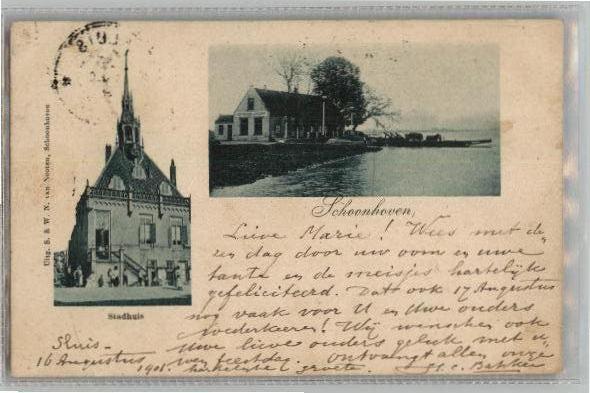 SLUIS
Uitg. S. & W. N. van Nooten, Schoonhoven
Stadhuis
Schoonhoven,
Lieve Marie! Wees met de-
zen dag door uw oom en uwe
tante en de meisjes hartelijk
gefeliciteerd. Dat ook 17 Augustus
nog vaak voor U en Uwe ouders
wederkeere! Wij wenschen ook
Uwe lieve ouders geluk met u
feestdag. Ontvangt allen onze
hartelijke groete.
Sluis-
16 Augustus 1901.
Bakker